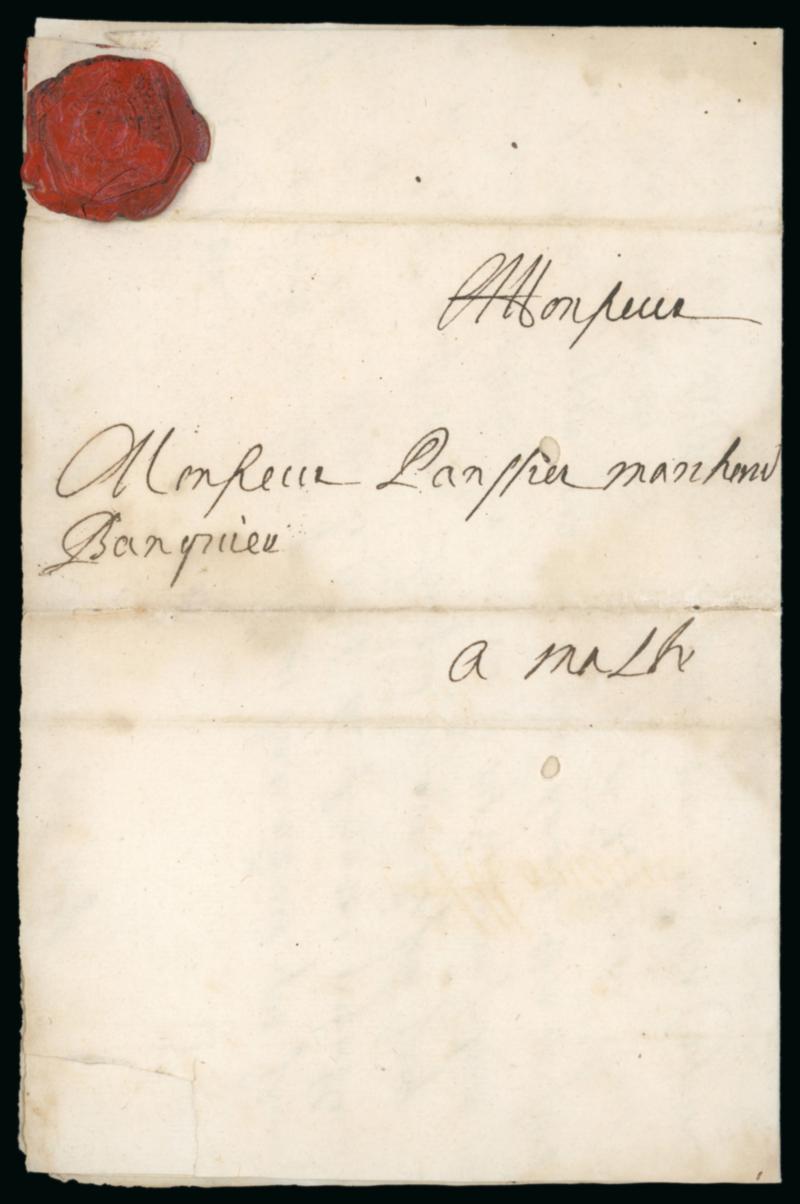 Monsieur
Monsieur Panssier marchand
Banquier
a malthe